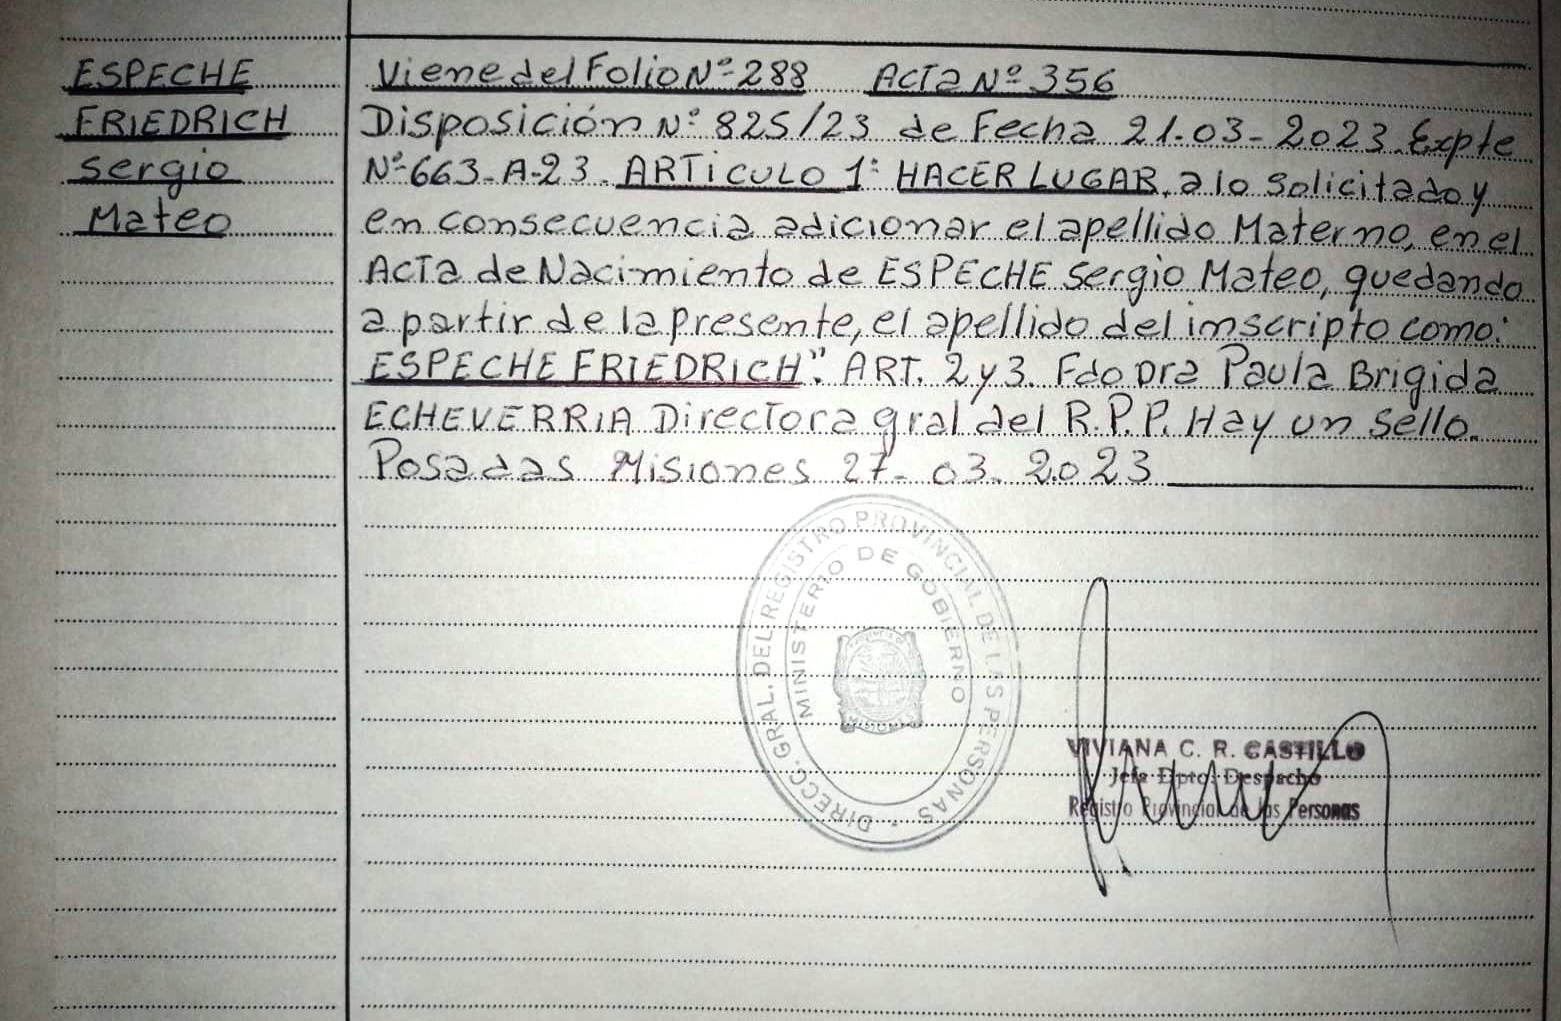 ESPECHE
FRIEDRICH
Sergio
Mateo
Viene del Folio Nº 288 Acta Nº 356
Disposición Nº 825/23 de Fecha 21-03-2023. Expte
Nº 663-A-23. ARTICULO 1º HACER LUGAR, a lo Solicitado y
en consecuencia adicionar el apellido Materno, en el
Acta de Nacimiento de ESPECHE Sergio Mateo, quedando
a partir de la presente, el apellido del inscripto como:
ESPECHE FRIEDRICH". ART. 2 y 3. Fdo Dra Paula Brigida
ECHEVERRIA Directora gral del R.P.P. Hay un sello.
Posadas Misiones 27-03-2023
DIRECC. GRAL. DEL REGISTRO PROVINCIAL DE LAS PERSONAS
MINISTERIO DE GOBIERNO
MISIONES
VIVIANA C. R. CASTILLO
Jefa Dpto. Despacho
Registro Provincial de las Personas